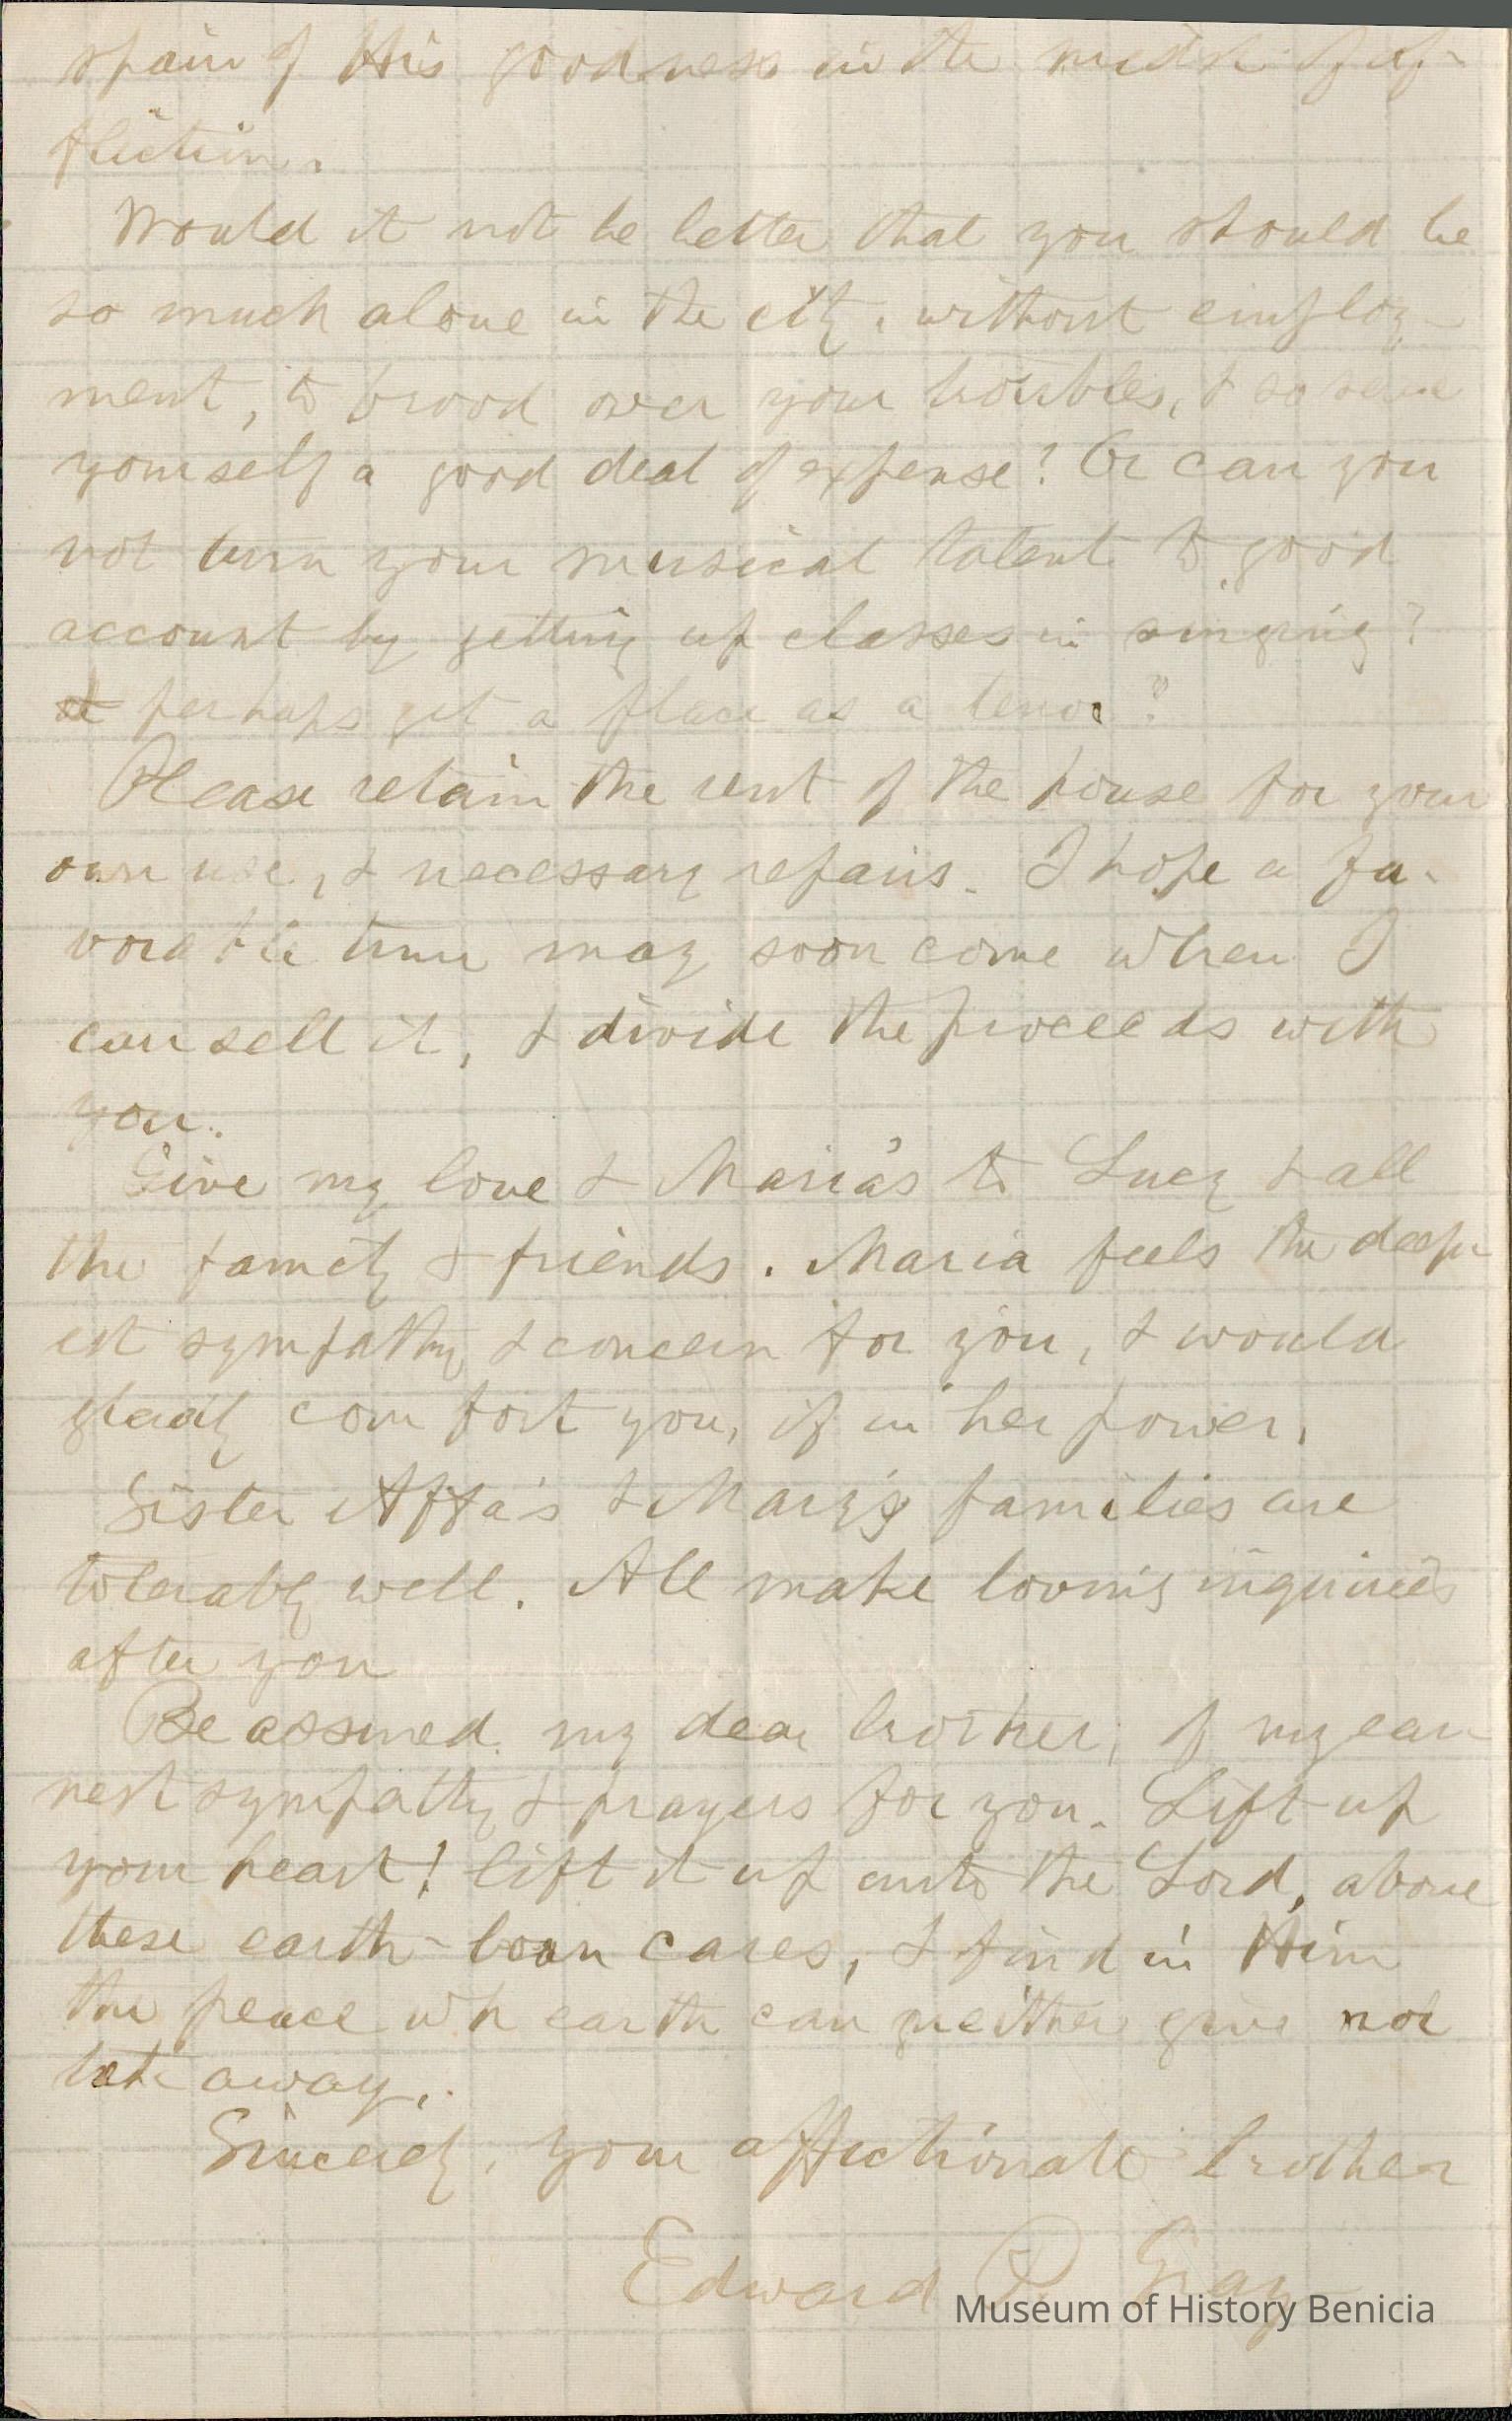 spair of His goodness in the midst of af-
fliction.
Would it not be better that you should be
so much alone in the city, without employ-
ment, to brood over your troubles, & so save
yourself a good deal of expense? Or can you
not turn your musical talent to good
account by getting up classes in singing?
perhaps get a place as a tenor?
Please retain the rent of the house for your
own use, & necessary repairs. I hope a fa-
vorable time may soon come when I
can sell it, & divide the proceeds with
you.
Give my love & Maria's to Lucy & all
the family & friends. Maria feels the deep-
est sympathy & concern for you, & would
gladly comfort you, if in her power.
Sister Affa's & Mary's families are
tolerably well. All make loving inquiries
after you
Be assured, my dear brother, of my ear-
nest sympathy & prayers for you. Lift up
your heart! lift it up unto the Lord, above
these earth-born cares, & find in Him
the peace wh earth can neither give nor
take away.
Sincerely, your affectionate brother
Edward P. Gray
Museum of History Benicia